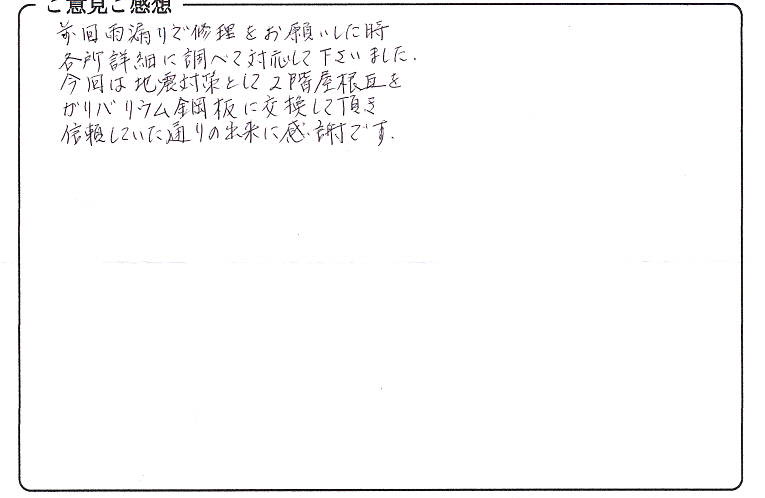 ご意見ご感想
前回雨漏りで修理をお願いした時
各所詳細に調べて対応して下さいました.
今回は地震対策として2階屋根瓦を
ガリバリウム鋼板に交換して頂き
信頼していた通りの出来に感謝です.